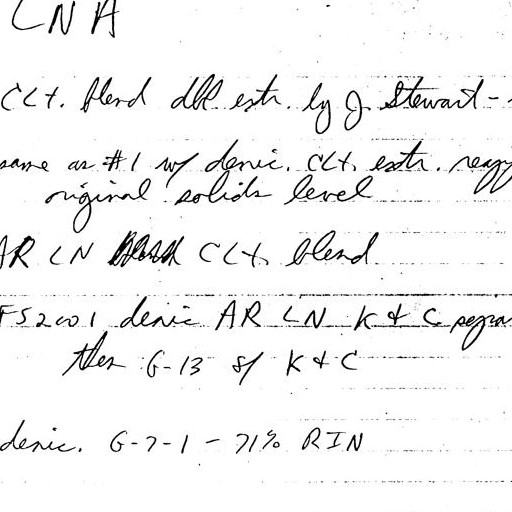 LNA
CLt. blend dbl extr. by J. Stewart -
same as #1 w/ denic. CLt. extr.
original solids level
AR LN CLt blend
FS2001 denic AR LN K & C
then G-13 s/ K + C
denic. G-7-1 - 71% RIN